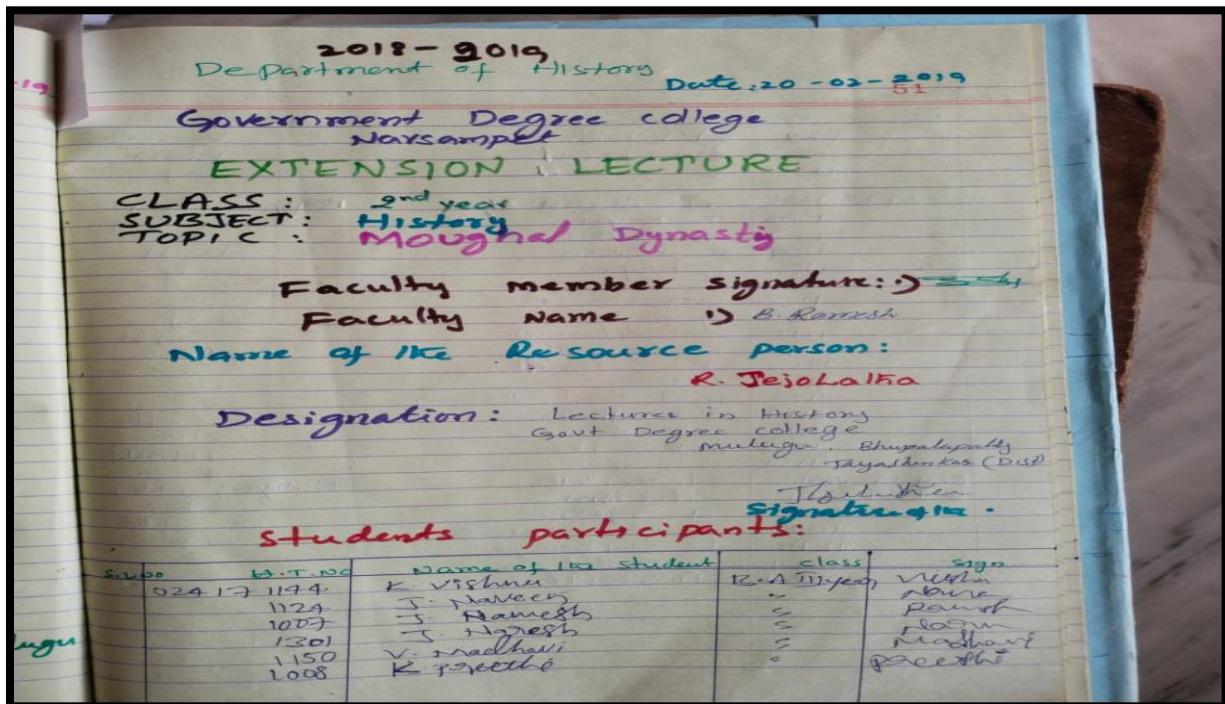 2018-2019
Department of History
Date: 20-02-2019
51
Government Degree college
Narsampet
EXTENSION : LECTURE
CLASS : 2nd year
SUBJECT : History
TOPIC : Moughal Dynasty
Faculty member signature: 1)
Faculty Name 1) B. Ramesh
Name of the Resource person:
R. JejoLatha
Designation: Lecturer in History
Govt Degree college
mulugu. Bhupalapally
Jayashankar (Dist)
Signature of the.
students participants:
S.L.No H.T.No Name of the student class sign
02417 1194 K Vishnu B.A III year
1124 J. Naveen "
1007 J. Ramesh "
1301 J. Naresh "
1150 V. Madhavi " Madhavi
1008 K Preethi " Preethi